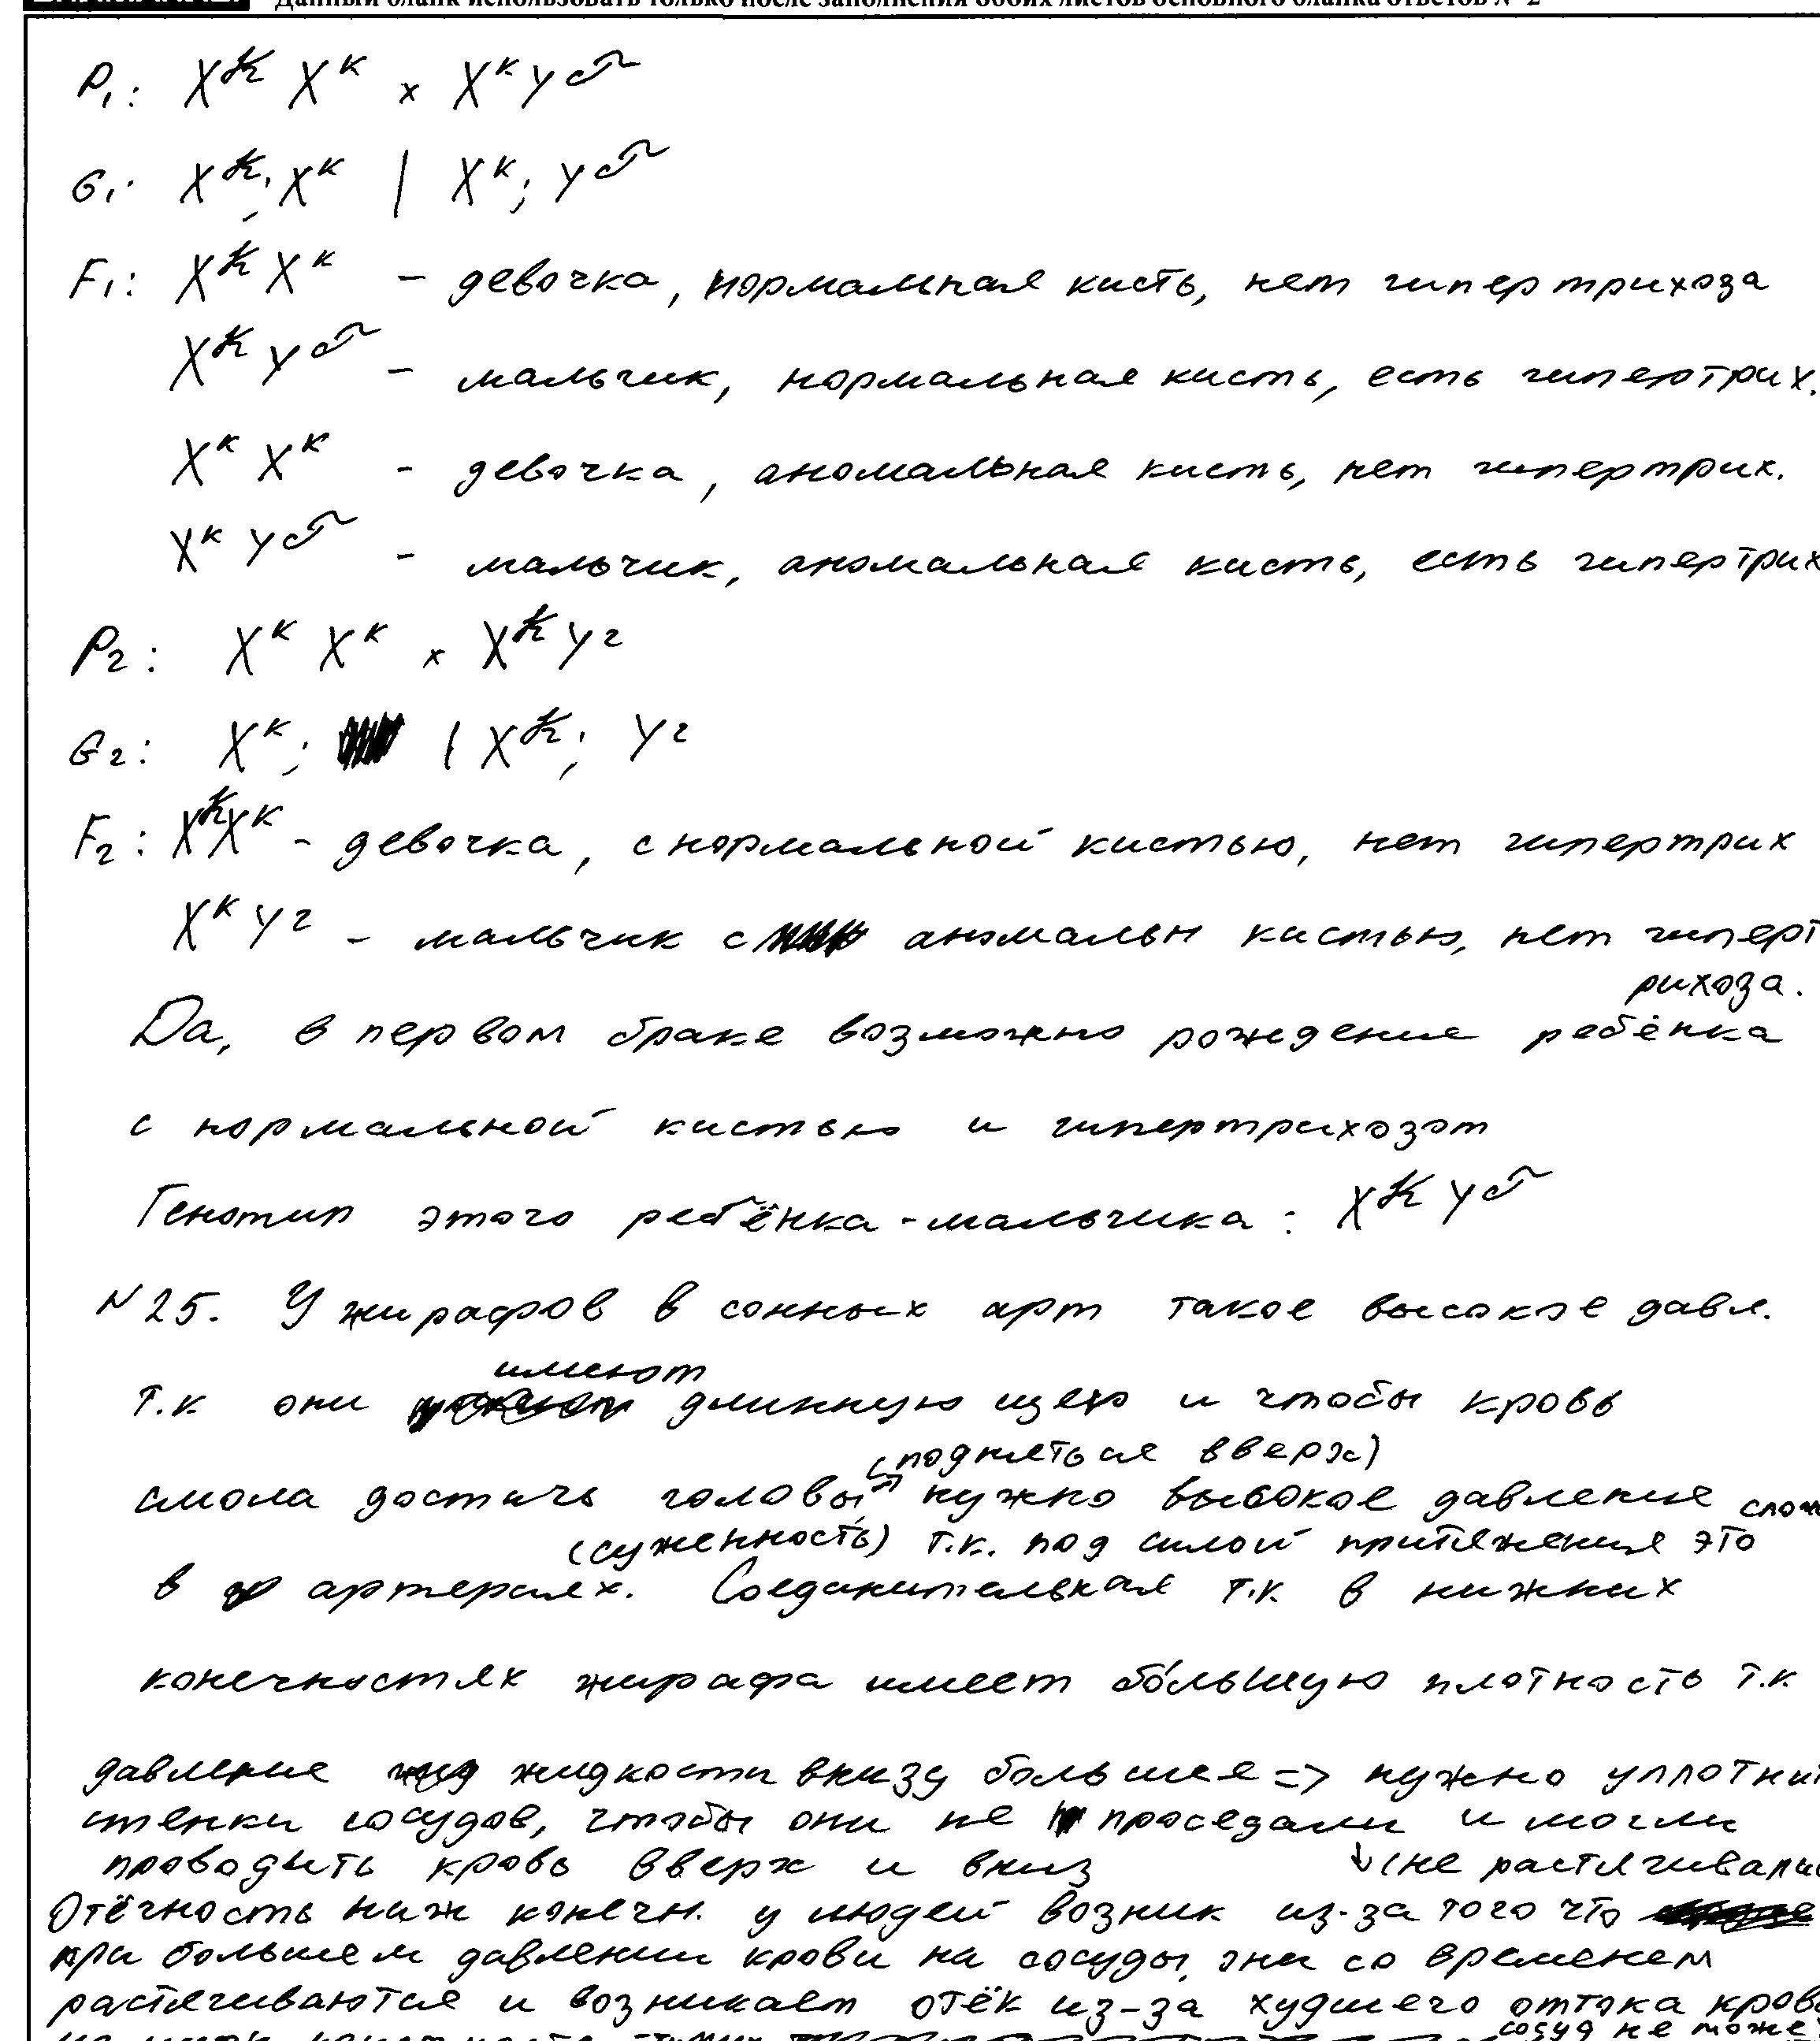 Данный бланк использовать только после заполнения обоих листов основного бланка ответов № 2
P₁: X^K X^к × X^к Y^Г
G₁: X^K; X^к | X^к; Y^Г
F₁: X^K X^к - девочка, нормальная кисть, нет гипертрихоза
X^K Y^Г - мальчик, нормальная кисть, есть гипертрих.
X^к X^к - девочка, аномальная кисть, нет гипертрих.
X^к Y^Г - мальчик, аномальная кисть, есть гипертрих
P₂: X^к X^к × X^K Y^г
G₂: X^к; | X^K; Y^г
F₂: X^K X^к - девочка, с нормальной кистью, нет гипертрих
X^к Y^г - мальчик с аномальн кистью, нет гиперт
рихоза.
Да, в первом браке возможно рождение ребёнка
с нормальной кистью и гипертрихозом
Генотип этого ребёнка-мальчика: X^K Y^Г
N 25. У жирафов в сонных арт такое высокое давл.
имеют
т.к они длинную шею и чтобы кровь
(подняться вверх)
смогла достичь головы нужно высокое давление
(суженность) т.к. под силой притяжения это
в артериях. Соединительная т.к в нижних
конечностях жирафа имеет бо́льшую плотность т.к
давление жидкости внизу больше => нужно уплотнит
стенки сосудов, чтобы они не проседали и могли
проводить кровь вверх и вниз ↓(не растягивали
Отёчность ниж конечн. у людей возник из-за того что
при большем давлении крови на сосуды, они со временем
растягиваются и возникает отёк из-за худшего оттока крови
сосуд не може